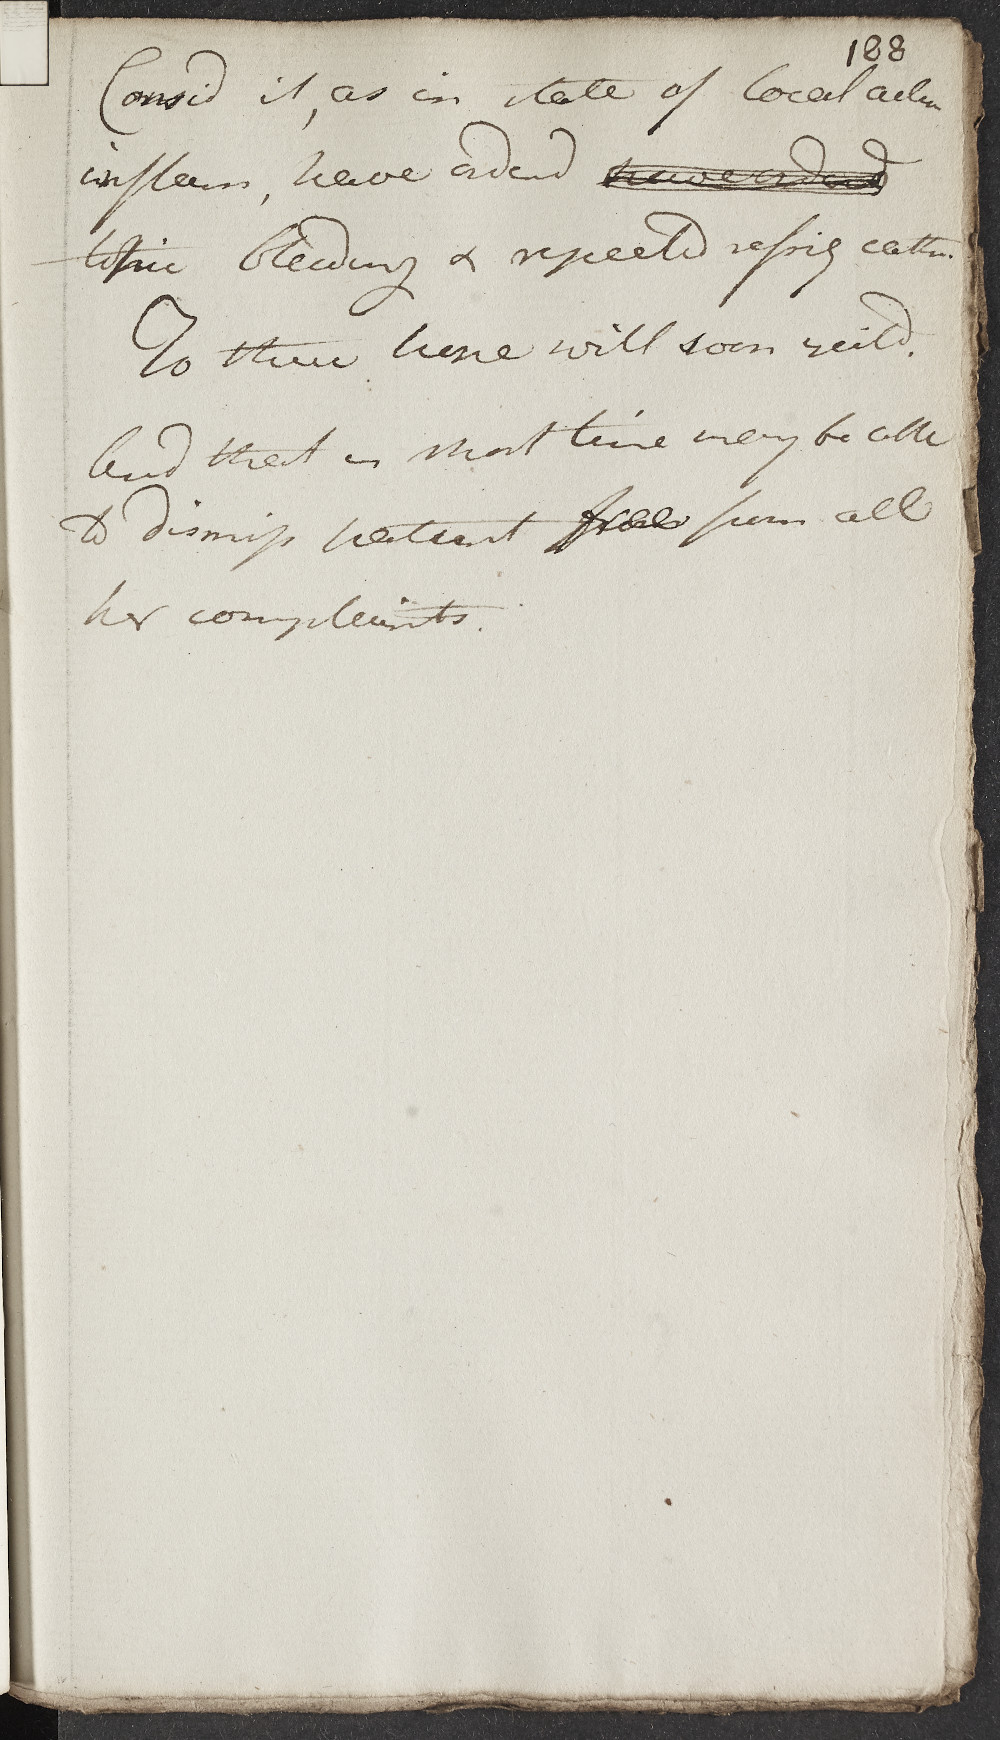 188
Consid it, as in state of local actin
inflam, have ordend have ordend
topic bleeding & repeetd refrig
To these hope will soon yeild.
And that in short time may be able
to dismiss patient free from all
her complaints.